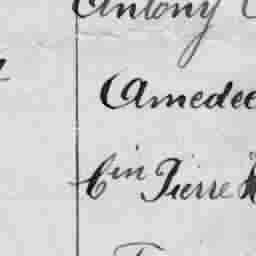 Antony
Amedee
Cin Pierre